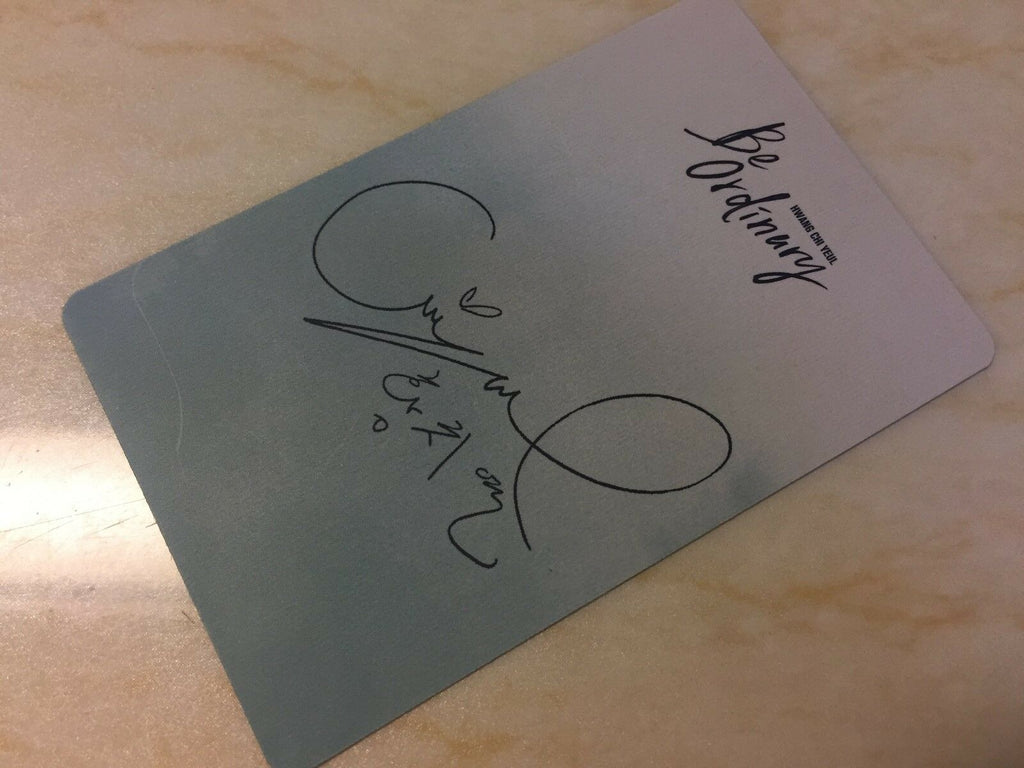 Be
Ordinary
HWANG CHI YEUL
황치열